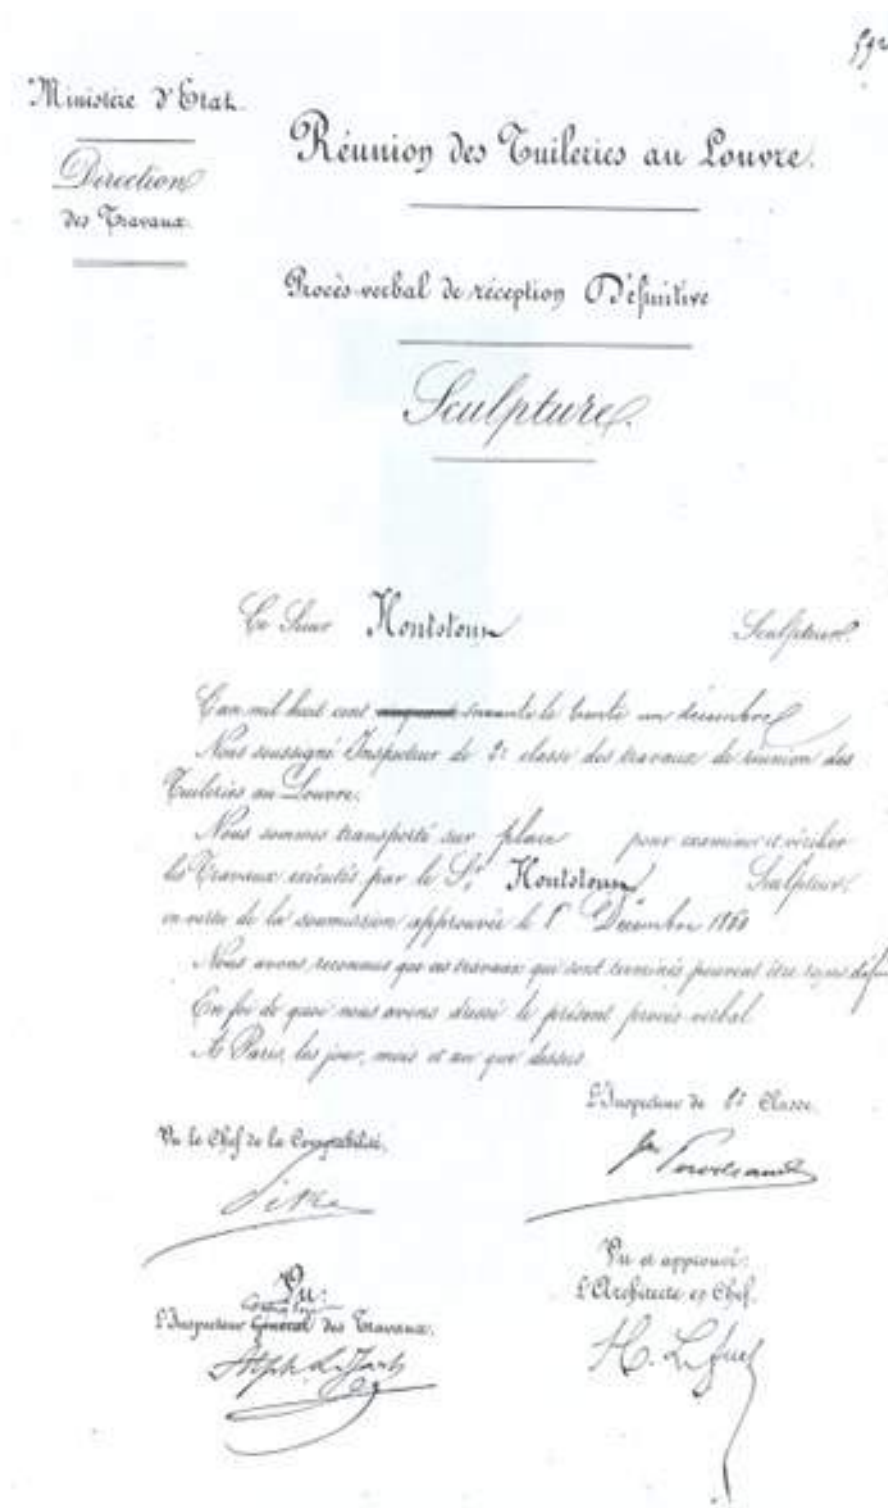 Ministère d'Etat.
Direction
des Travaux.
Réunion des Tuileries au Louvre.
Procès-verbal de réception Définitive
Sculpture.
Le Sieur Sculpteur.
L'an mil huit cent soixante le trente un décembre
Nous soussigné Inspecteur de 2e classe des travaux de réunion des
Tuileries au Louvre.
Nous sommes transporté sur place pour examiner et vérifier
les Travaux exécutés par le Sr. Sculpteur,
en vertu de la soumission approuvée le 1er Décembre 1860
Nous avons reconnus que ces travaux qui sont terminés peuvent être reçus
En foi de quoi nous avons dressé le présent procès-verbal
A Paris, les jour, mois et an que dessus.
L'Inspecteur de 2e Classe.
Vu le Chef de la Comptabilité,
Vu et approuvé:
L'Architecte en Chef.
Vu:
L'Inspecteur Général des Travaux.
H. Lefuel